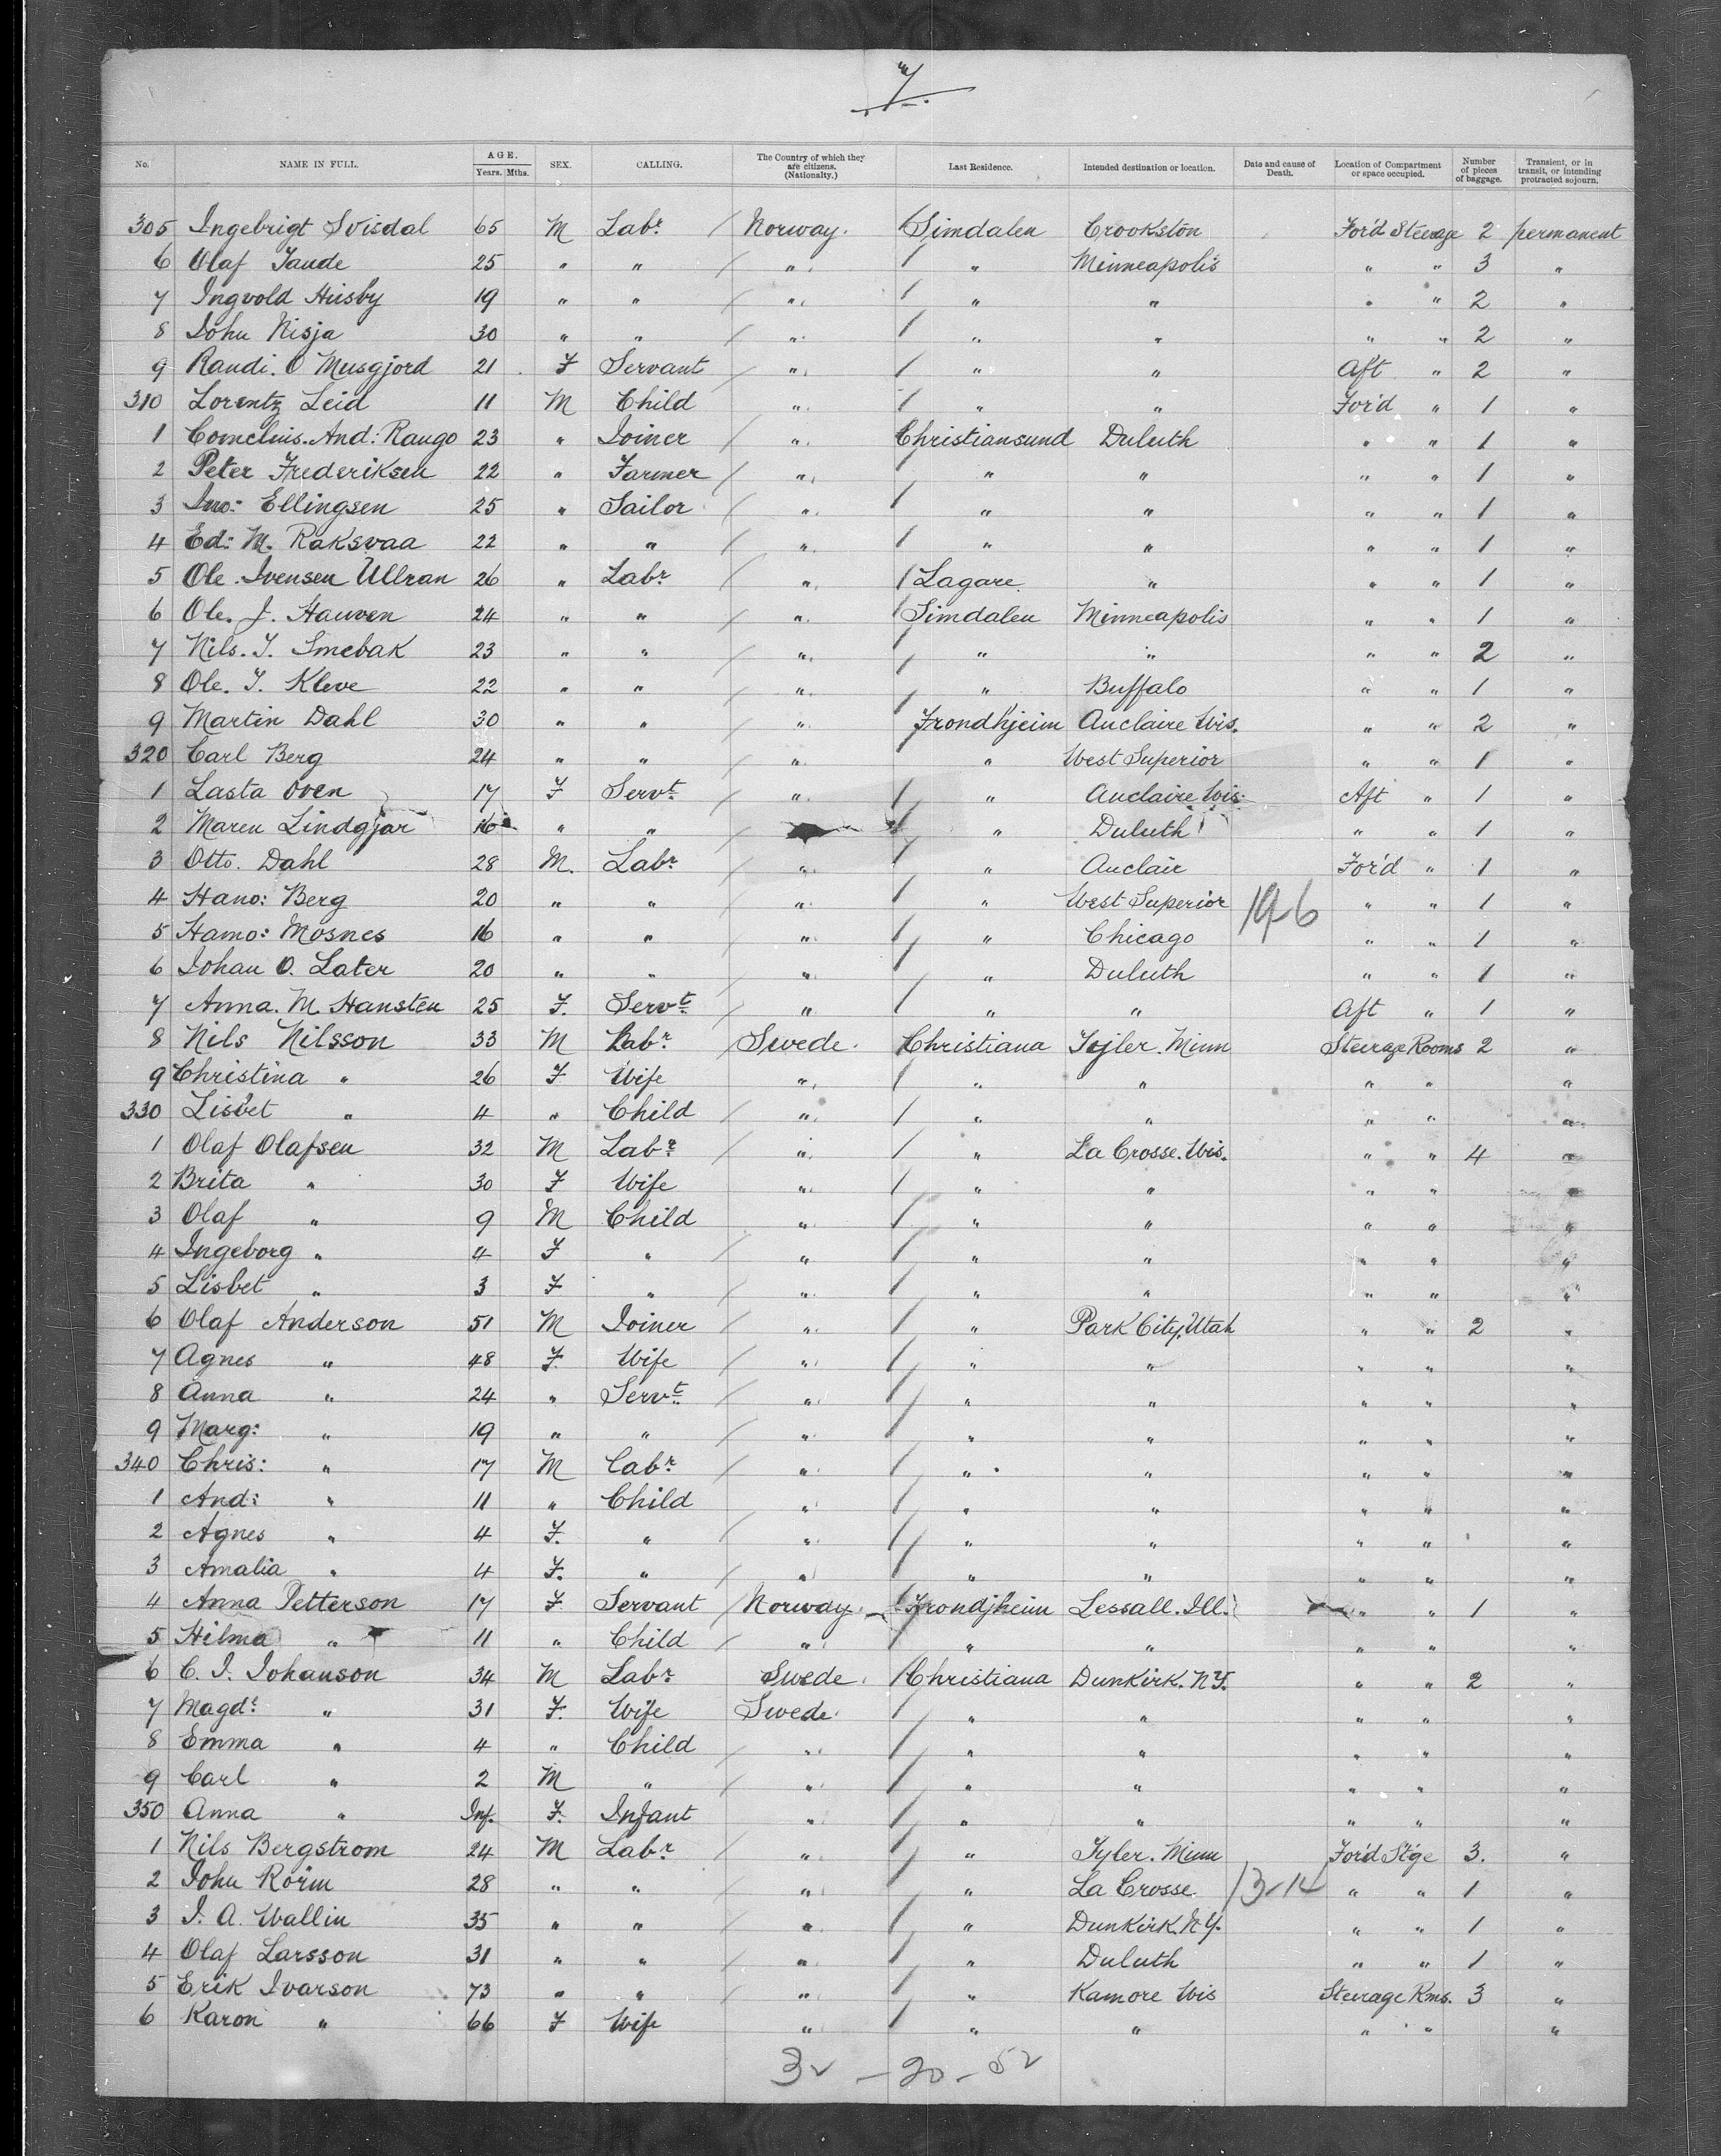 7
No. NAME IN FULL. AGE. Years. Mths. SEX. CALLING. The Country of which they are citizens. (Nationalty.) Last Residence. Intended destination or location. Date and cause of Death. Location of Compartment or space occupied. Number of pieces of baggage. Transient, or in transit, or intending protracted sojourn.
305 Ingebrigt Svisdal 65 M Labr. / Norway. / Simdalen Crookston For'd Steerage 2 permanent
6 Olaf Taude 25 " " / " / " Minneapolis " " 3 "
7 Ingvold Husby 19 " " / " / " " " " 2 "
8 John Nisja 30 " " / " / " " " " 2 "
9 Randi. O Musgjord 21 F Servant / " / " " Aft " 2 "
310 Lorentz Leid 11 M Child / " / " " For'd " 1 "
1 Cornelius. And: Raugo 23 " Joiner / " / Christiansund Duluth " " 1 "
2 Peter Frederiksen 22 " Farmer / " / " " " " 1 "
3 Jno: Ellingsen 25 " Sailor / " / " " " " 1 "
4 Ed: M. Raksvaa 22 " " / " / " " " " 1 "
5 Ole. Ivensen Ullran 26 " Labr. / " / Lagare " " " 1 "
6 Ole. J. Hauven 24 " " / " / Simdalen Minneapolis " " 1 "
7 Nils. T. Smebak 23 " " / " / " " " " 2 "
8 Ole. T. Kleve 22 " " / " / " Buffalo " " 1 "
9 Martin Dahl 30 " " / " / Trondhjeim Auclaire Wis. " " 2 "
320 Carl Berg 24 " " / " / " West Superior " " 1 "
1 Lasta Oven 17 F Servt. / " / " Auclaire Wis. Aft " 1 "
2 Maren Lindgjar 16 " " / / " Duluth " " 1 "
3 Otto. Dahl 28 M. Labr. / " / " Auclair For'd " 1 "
4 Hano: Berg 20 " " / " / " West Superior 19-6 " " 1 "
5 Hamo: Mosnes 16 " " / " / " Chicago " " 1 "
6 Johan O. Later 20 " " / " / " Duluth " " 1 "
7 Anna. M. Hansten 25 F. Servt. / " / " " Aft " 1 "
8 Nils Nilsson 33 M Labr. / Swede. / Christiana Tyler. Minn Steerage Rooms 2 "
9 Christina " 26 F Wife / " / " " " " "
330 Lisbet " 4 " Child / " / " " " " "
1 Olaf Olafsen 32 M Labr. / " / " La Crosse. Wis. " " 4 "
2 Brita " 30 F Wife / " / " " " " "
3 Olaf " 9 M Child / " / " " " " "
4 Ingeborg " 4 F " / " / " " " " "
5 Lisbet " 3 F " / " / " " " " "
6 Olaf Anderson 51 M Joiner / " / " Park City, Utah " " 2 "
7 Agnes " 48 F. Wife / " / " " " " "
8 Anna " 24 " Servt. / " / " " " " "
9 Marg: " 19 " " / " / " " " " "
340 Chris: " 17 M Labr. / " / " " " " "
1 And: " 11 " Child / " / " " " " "
2 Agnes " 4 F. " / " / " " " " "
3 Amalia " 4 F. " / " / " " " " "
4 Anna Petterson 17 F Servant / Norway. / Trondjheim Lessall. Ill. " " 1 "
5 Hilma " 11 " Child / " / " " " " "
6 C. J. Johanson 34 M Labr. / Swede. / Christiana Dunkirk. N.Y. " " 2 "
7 Magdr. " 31 F. Wife / Swede. / " " " " "
8 Emma " 4 " Child / " / " " " " "
9 Carl " 2 M " / " / " " " " "
350 Anna " Inf. F. Infant / " / " " " " "
1 Nils Bergstrom 24 M Labr. / " / " Tyler. Minn For'd St'ge 3. "
2 John Rörin 28 " " / " / " La Crosse. 13-14 " " 1 "
3 J. A. Wallin 35 " " / " / " Dunkirk. N.Y. " " 1 "
4 Olaf Larsson 31 " " / " / " Duluth " " 1 "
5 Erik Ivarson 73 " " / " / " Kamore Wis Steerage Rms. 3 "
6 Karon " 66 F Wife / " / " " " " "
32 - 20 - 52